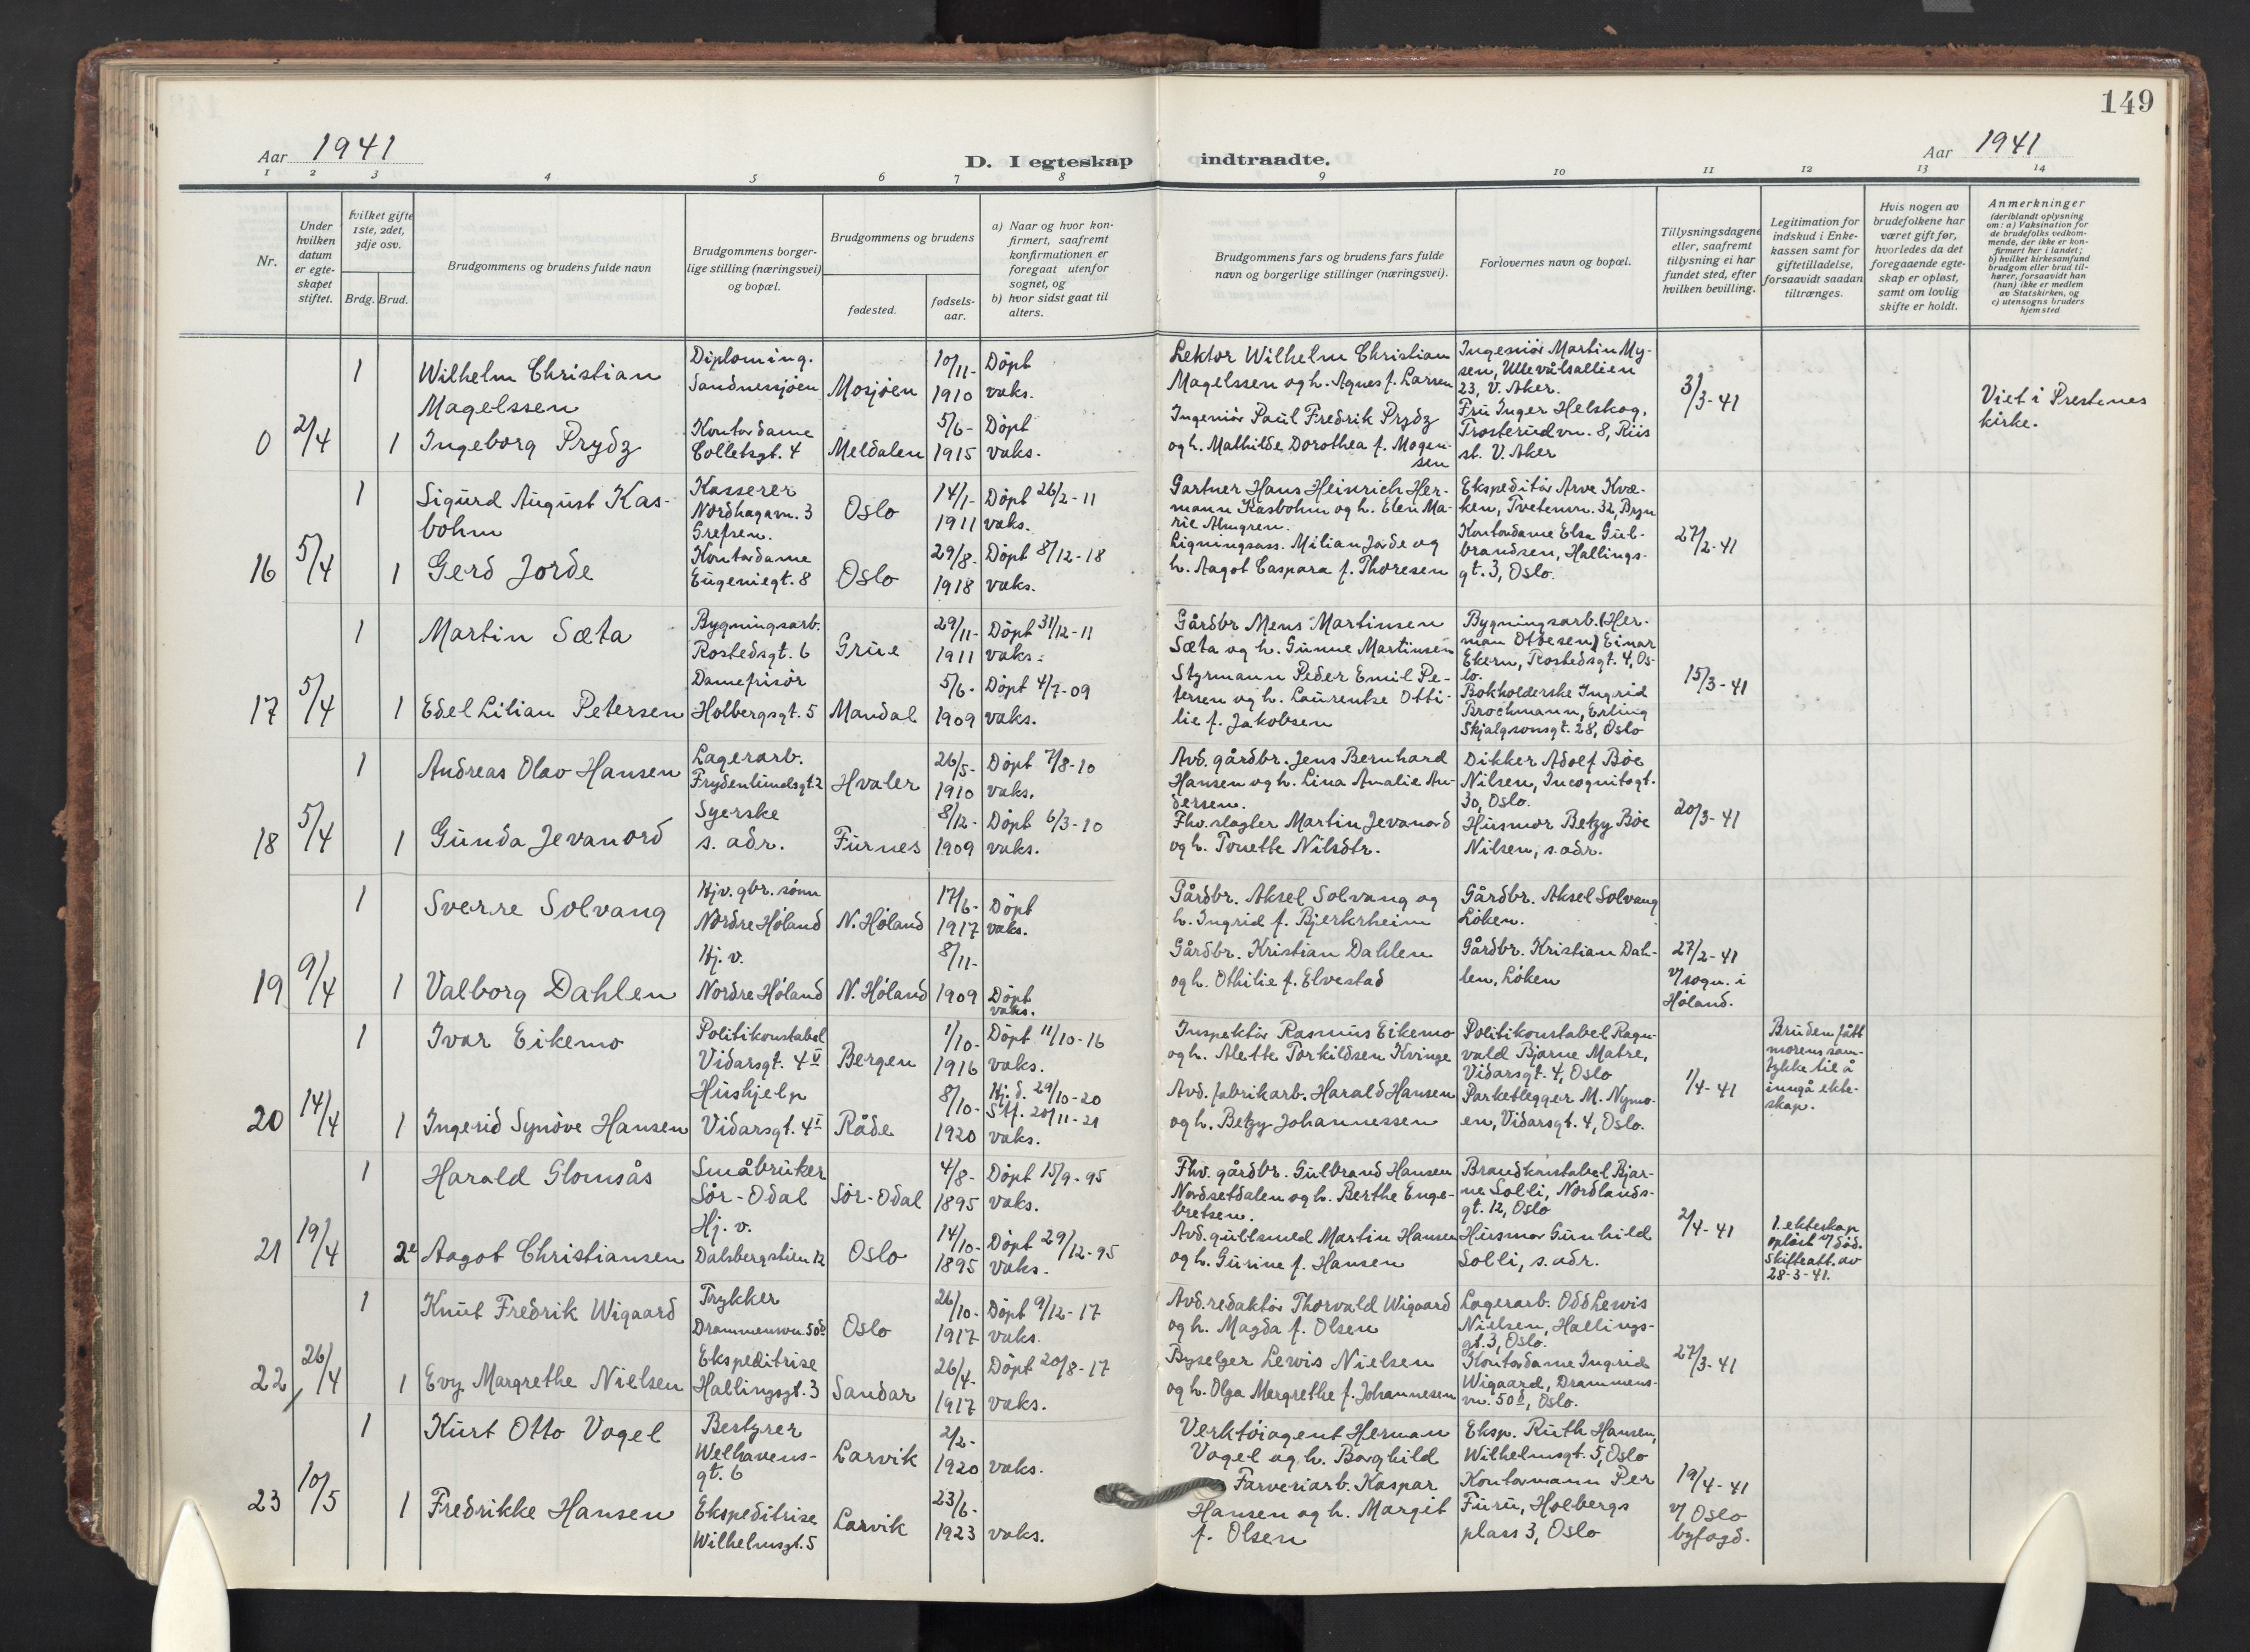 149
Aar 1941
D. I egteskap indtraadte.
Aar 1941
1 2 3 4 5 6 7 8 9 10 11 12 13 14
Nr.
Under hvilken datum er egte-skapet stiftet.
hvilket gifte 1ste, 2det, 3dje osv.
Brdg. Brud.
Brudgommens og brudens fulde navn
Brudgommens borger-
lige stilling (næringsvei)
og bopæl.
Brudgommens og brudens
fødested.
fødsels-
aar.
a) Naar og hvor kon-
firmert, saafremt
konfirmationen er
foregaat utenfor
sognet, og
b) hvor sidst gaat til
alters.
Brudgommens fars og brudens fars fulde
navn og borgerlige stillinger (næringsvei).
Forlovernes navn og bopæl.
Tillysningsdagene
eller, saafremt
tillysning ei har
fundet sted, efter
hvilken bevilling.
Legitimation for
indskud i Enke-
kassen samt for
giftetilladelse,
forsaavidt saadan
tiltrænges.
Hvis nogen av
brudefolkene har
været gift før,
hvorledes da det
foregaaende egte-
skap er opløst,
samt om lovlig
skifte er holdt.
Anmerkninger
(deriblandt oplysning
om: a) Vaksination for
de brudefolks vedkom-
mende, der ikke er kon-
firmert her i landet;
b) hvilket kirkesamfund
brudgom eller brud til-
hører, forsaavidt han
(hun) ikke er medlem
av Statskirken, og
c) utensogns bruders
hjemsted
0
2/4
1
Wilhelm Christian
Magelssen
Diploming.
Sandnessjøen
Mosjøen
10/11-
1910
Döpt
vaks.
Lektor Wilhelm Christian
Magelssen og h. Agnes f. Larsen
Ingeniør Martin My-
sen, Ullevålsalléen
23, V. Aker.
3/3-41
Viet i Prestenes
kirke.
1
Ingeborg Prydz
Kontordame
Colletsgt. 4
Meldalen
5/6-
1915
Döpt
vaks.
Ingeniør Paul Fredrik Prydz
og h. Mathilde Dorothea f. Mogen-
sen
Fru Inger Helskog,
Trosterudvn. 8, Riis
st. V. Aker
16
5/4
1
Sigurd August Kas-
bohm
Kasserer
Nordhagavn. 3
Grefsen.
Oslo
14/1-
1911
Döpt 26/2-11
vaks.
Gartner Hans Heinrich Her-
mann Kasbohm og h. Elen Ma-
rie Almgren.
Ekspeditør Arve Kvæ-
ken, Tvetenvn. 32, Bryn
27/2-41
1
Gerd Jorde
Kontordame
Eugeniegt. 8
Oslo
29/8-
1918
Döpt 8/12-18
vaks.
Ligningsass. Milian Jorde og
h. Aagot Caspara f. Thoresen
Kontordame Elsa Gul-
brandsen, Hallings-
gt. 3, Oslo.
17
5/4
1
Martin Sæta
Bygningsarb.
Rostedsgt. 6
Grue
29/11-
1911
Döpt 31/12-11
vaks.
Gårdbr Mens Martinsen
Sæta og h. Gunne Martinsen
Bygningsarb. (Her-
man Ottesen) Einar
Ekern, Rostedsgt. 4, Os-
lo.
15/3-41
1
Edel Lilian Petersen
Damefrisør
Holbergsgt. 5
Mandal
5/6-
1909
Döpt 4/7-09
vaks.
Styrmann Peder Emil Pe-
tersen og h. Laurentse Otti-
lie f. Jakobsen
Bokholderske Ingrid
Brochmann, Erling
Skjalgsonsgt. 28, Oslo
18
5/4
1
Andreas Olav Hansen
Lagerarb.
Frydenlundsgt. 2
Hvaler
26/5-
1910
Döpt 7/8-10
vaks.
Avd. gårdbr. Jens Bernhard
Hansen og h. Lina Amalie An-
dersen.
Dikker Adolf Bøe
Nilsen, Incognitogt.
30, Oslo.
20/3-41
1
Gunda Jevanord
Syerske
s. adr.
Furnes
8/12-
1909
Döpt 6/3-10
vaks.
Fhv. slagter Martin Jevanord
og h. Tonette Nilsdtr.
Husmor Betzy Bøe
Nilsen, s. adr.
19
9/4
1
Sverre Solvang
Hjv. gbr. sønn
Nordre Høland
N. Høland
17/6-
1917
Döpt
vaks.
Gårdbr. Aksel Solvang og
h. Ingrid f. Bjerkrheim
Gårdbr. Aksel Solvang
Löken.
27/2-41
v/ sogn. i
Høland.
1
Valborg Dahlen
Hj. v.
Nordre Høland
N. Høland
8/11-
1909
Döpt
vaks.
Gårdbr. Kristian Dahlen
og h. Othilie f. Elvestad
Gårdbr. Kristian Dah-
len, Löken
20
14/4
1
Ivar Eikemo
Politikonstabel
Vidarsgt. 4 V
Bergen
1/10-
1916
Döpt 11/10-16
vaks.
Inspektør Rasmus Eikemo
og h. Alette Torkildsen Kvinge
Politikonstabel Ragn-
vald Bjarne Matre,
Vidarsgt. 4, Oslo
1/4-41
Bruden fått
morens sam-
tykke til å
inngå ekte-
skap.
1
Ingerid Synöve Hansen
Hushjelp
Vidarsgt. 4 I
Råde
8/10-
1920
Hj. d. 29/10-20
St f. 20/11-21
vaks.
Avd. fabrikarb. Harald Hansen
og h. Betzy Johannessen
Parketlegger M. Nymo-
en, Vidarsgt. 4, Oslo.
21
19/4
1
Harald Glomsås
Småbruker
Sör-Odal
Sör-Odal
4/8-
1895
Döpt 15/9-95
vaks.
Fhv. gårdbr. Gulbrand Hansen
Nordsetdalen og h. Berthe Enge-
bretsen.
Brandkonstabel Bjar-
ne Solli, Nordlands-
gt. 12, Oslo
2/4-41
1. ekteskap
opløst v/ död.
Skifteatt. av
28-3-41.
2e
Aagot Christiansen
Hj. v.
Dalsbergstien 12
Oslo
14/10-
1895
Döpt 29/12-95
vaks.
Avd. gullsmed Martin Hansen
og h. Gurine f. Hansen
Husmor Gunhild
Solli, s. adr.
22
26/4
1
Knut Fredrik Wigaard
Trykker
Drammensvn. 50d
Oslo
26/10-
1917
Döpt 9/12-17
vaks.
Avd. redaktør Thorvald Wigaard
og h. Magda f. Olsen
Lagerarb. Odd Lewis
Nielsen, Hallings-
gt. 3, Oslo.
27/3-41
1
Evy Margrethe Nielsen
Ekspeditrise
Hallingsgt. 3
Sandar
26/4-
1917
Döpt 20/8-17
vaks.
Byselger Lewis Nielsen
og h. Olga Margrethe f. Johannesen
Kontordame Ingrid
Wigaard, Drammens-
vn. 50d, Oslo.
23
10/5
1
Kurt Otto Vogel
Bestyrer
Welhavens-
gt. 6
Larvik
2/2-
1920
vaks.
Verktøiagent Herman
Vogel og h. Borghild
Eksp. Ruth Hansen,
Wilhelmsgt. 5, Oslo
19/4-41
v/ Oslo
byfogd.
1
Fredrikke Hansen
Ekspeditrise
Wilhelmsgt. 5
Larvik
23/6-
1923
vaks.
Farveriarb. Kaspar
Hansen og h. Margit
f. Olsen
Kontormann Per
Furu, Holbergs
plass 3, Oslo